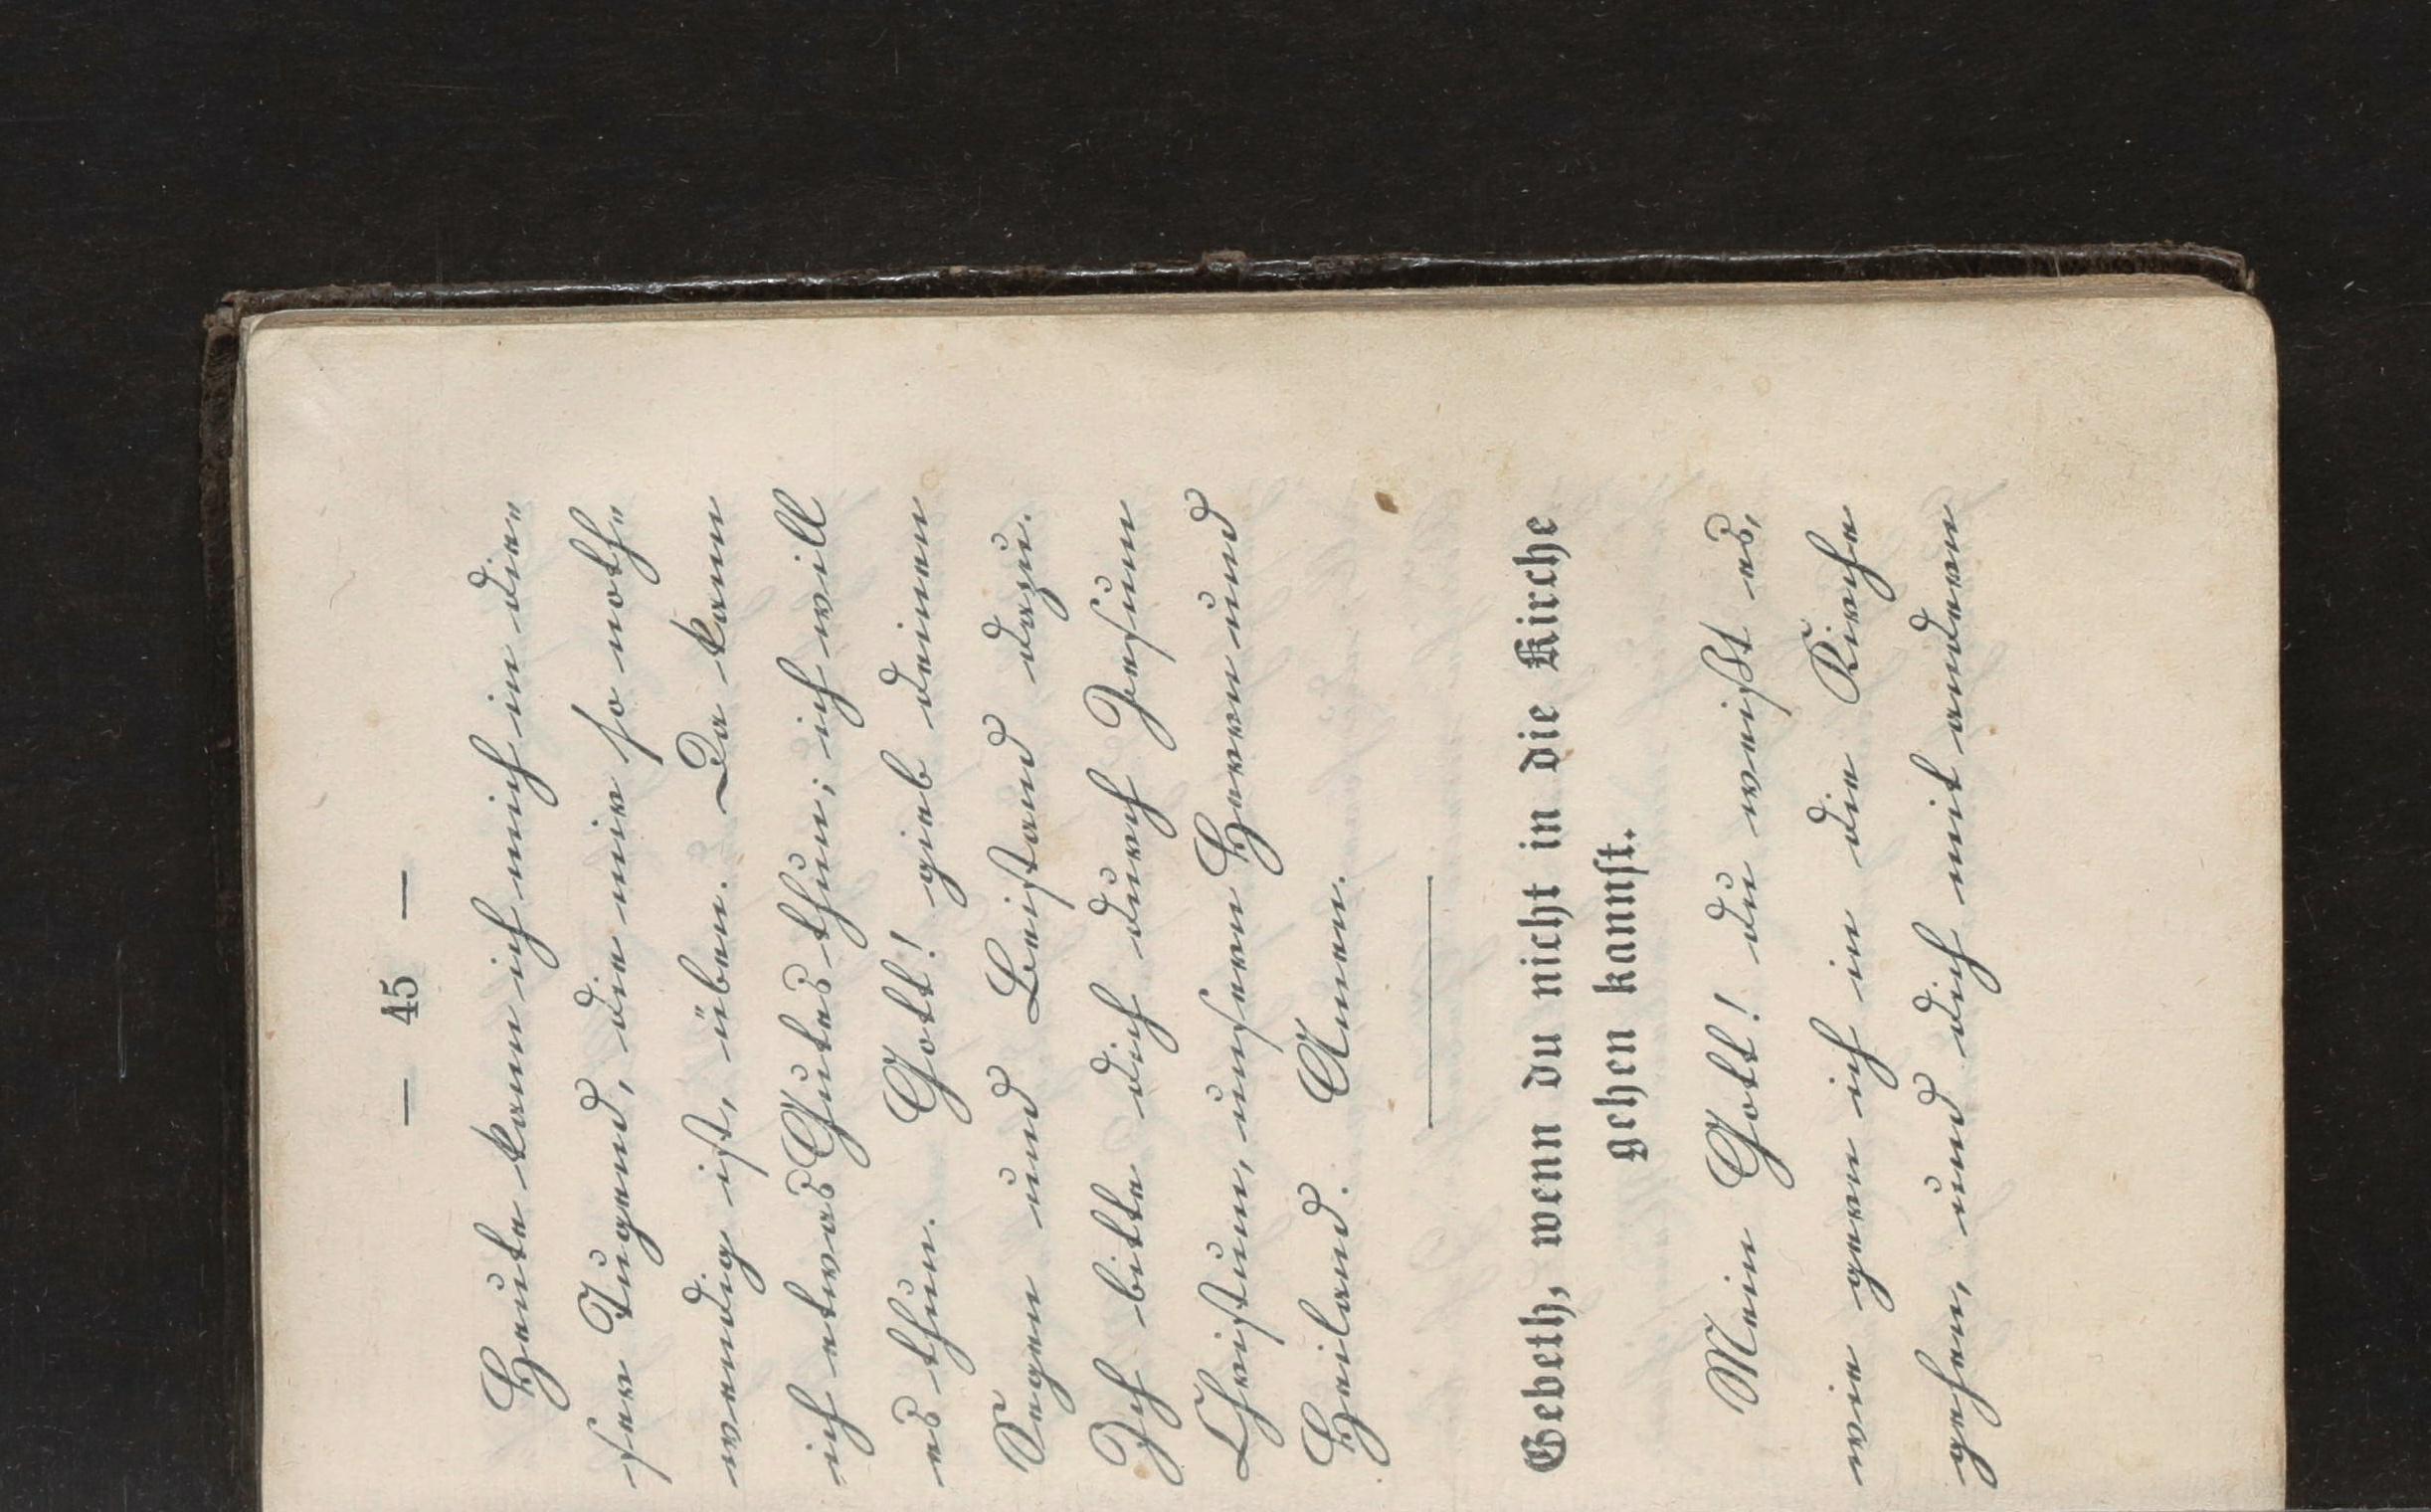 — 45 —
Heute kann ich mich in die=
ser Tugend, die mir so noth=
wendig ist, üben. Da kann
ich etwas Gutes thun; ich will
es thun. Gott! gieb deinen
Segen und Beistand dazu.
Ich bitte dich durch Jesum
Christum, unsern Herrn und
Heiland. Amen.
Gebeth, wenn du nicht in die Kirche
gehen kannst.
Mein Gott! du weißt es,
wie gern ich in die Kirche
gehen, und dich mit andern